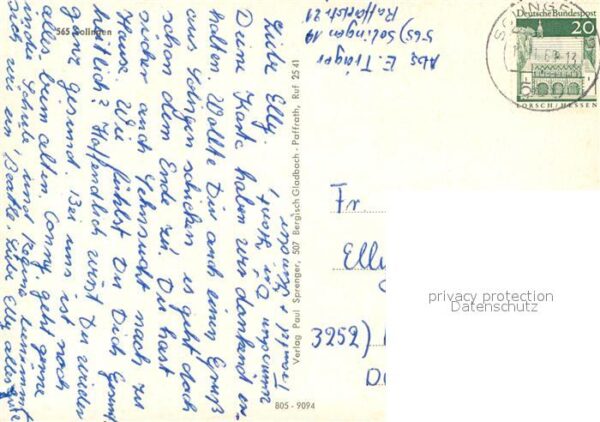 565 Solingen
Liebe Elly.
Deine Karte haben wir dankend er-
halten. Wollte Dir auch einen Gruß
aus Solingen schicken es geht doch
schon dem Ende zu. Du hast
sicher auch Sehnsucht nach zu
Hause. Wie fühlst Du Dich
Hoffendlich wirst Du wieder
ganz gesund. Bei uns ist noch
alles beim alten. Conny geht gerne
in die Schule und
sich wie ein Beatle. Liebe Elly alles gute
Abs. E. Träger
565) Solingen 19
Verlag Paul Sprenger, 507 Bergisch Gladbach - Paffrath, Ruf 2541
805 - 9094
Deutsche Bundespost
20
LORSCH/HESSEN
Fr.
Elly
3252)
privacy protection
Datenschutz